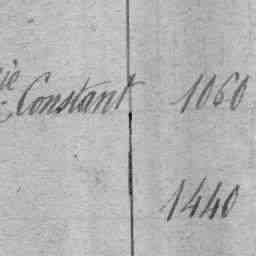 Constant 1060
1440